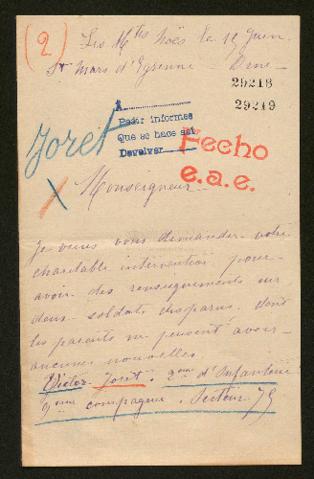 (2) Les Mtes Noës le 19 Juin
St Mars d'Egrenne Orne
29218
29219
A
Pedir informes
Que se hace así
Devolver
Fecho
e.a.e.
Joret
X
Monseigneur
Je viens vous demander votre
charitable intervention pour
avoir des renseignements sur
deux soldats disparus dont
les parents ne peuvent avoir
aucunes nouvelles.
Victor Joret. 2eme d'Infanterie
9eme compagnie, Secteur 75